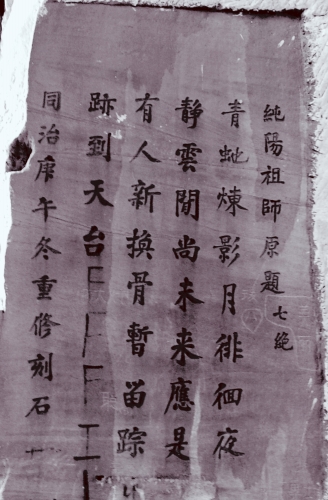 純陽祖師原題七絶
青虵煉影月徘徊夜
静雲閒尚未来應是
有人新換骨暫畄踪
跡到天台
同治庚午冬重修刻石